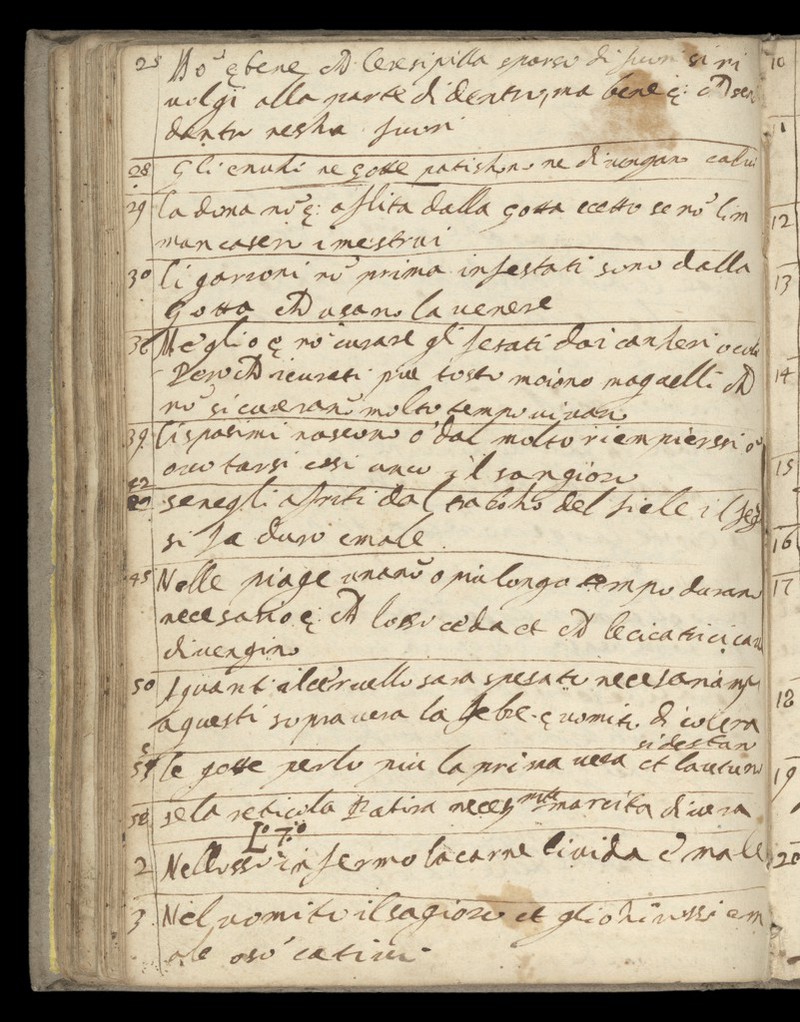 25 No ę bene ch leresipilla sparsa di fuori si ri
volgi alla parte di dentro, ma bene ę: ch
dentro nescha fuori
28 Gli enuhi ne gotte patishono ne divengano calui
29 la dona no ę: aflita dalla gotta ecetto se no li
mancasero i mestrui
30 li garzoni no prima infestati sono dalla
Gotta ch usano la venere
38 Meglio ę no curare gli fetati dai canheri oculti
Pero ch ricurati piu tosto moiono ma quelli ch
no si cureranno molto tempo vivano
39 li spasimi nascono o dal molto riempierssi o
votarsi cosi anco il sangiozo
42 se negli afriti dal del fiele il
si fa duro e male
45 Nelle piage unanno o piu longo tempo durano
necesario ę: ch losso ceda et ch le cicatrici
divengino
50 A quanti il cervello sara necesariam
a questi sopra vera la febre ę vomito di colera
55 le gotte perlo piu la prima vera et lautuno
si destano
58 se la reticola necesm marcita
Lo 7o
2 Nellosso infermo la carne livida e male
3 Nel vomito il sagiozo et gli ochi rossi e m
ale oso cativi